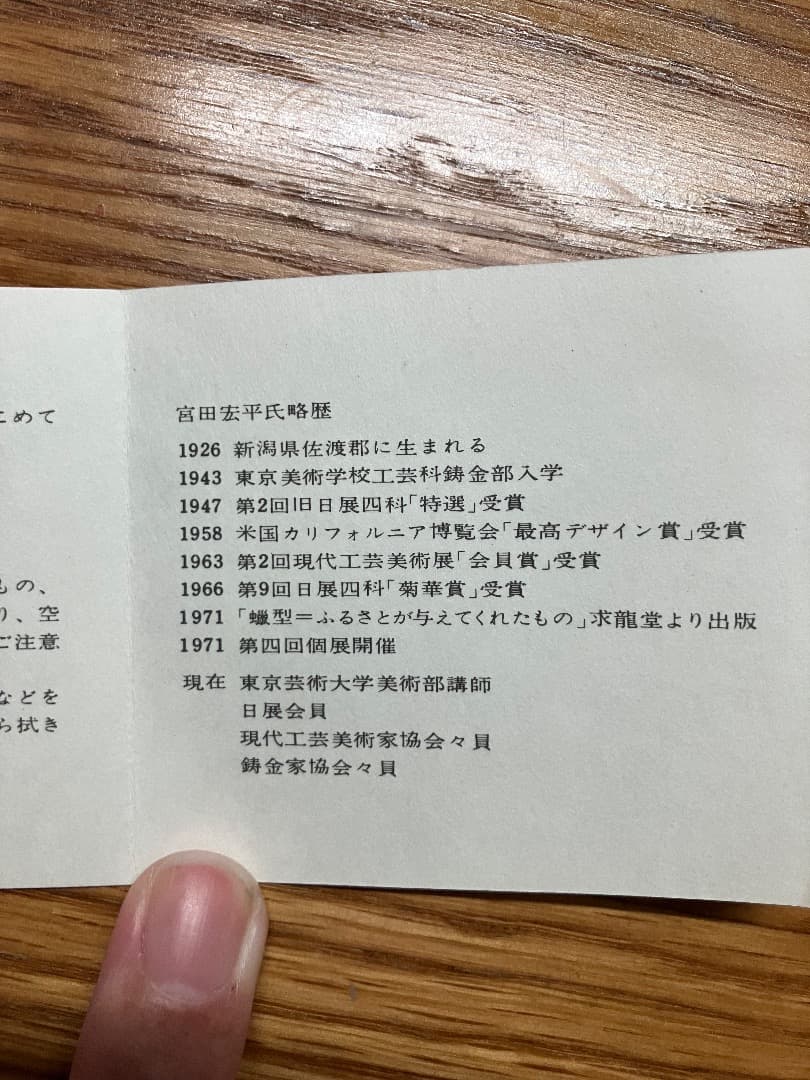 こめて
もの、
り、空
ご注意
などを
ら拭き
宮田宏平氏略歴
1926 新潟県佐渡郡に生まれる
1943 東京美術学校工芸科鋳金部入学
1947 第2回旧日展四科「特選」受賞
1958 米国カリフォルニア博覧会「最高デザイン賞」受賞
1963 第2回現代工芸美術展「会員賞」受賞
1966 第9回日展四科「菊華賞」受賞
1971 「蠟型＝ふるさとが与えてくれたもの」求龍堂より出版
1971 第四回個展開催
現在 東京芸術大学美術部講師
日展会員
現代工芸美術家協会々員
鋳金家協会々員